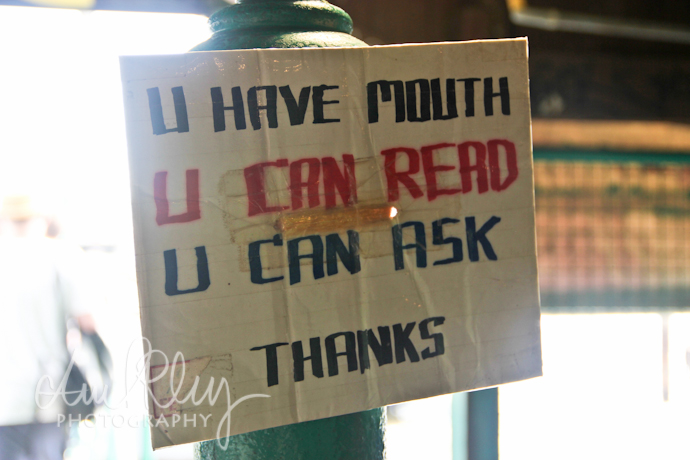 U HAVE MOUTH
U CAN READ
U CAN ASK
THANKS
PHOTOGRAPHY